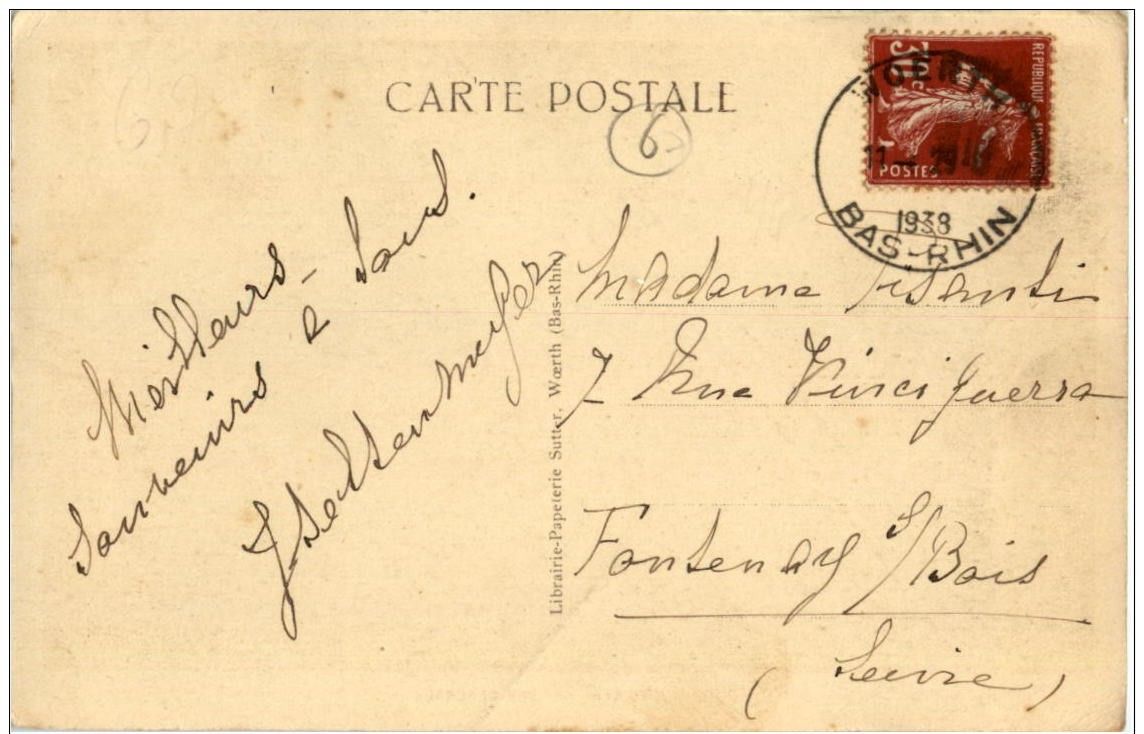 CARTE POSTALE
6
30c
REPUBLIQUE FRANÇAISE
POSTES
WOERTH
1938
BAS-RHIN
Meilleurs
Souvenirs à Tous.
Librairie-Papeterie Sutter. Wœrth (Bas-Rhin)
Madame
7 Rue Vinciguerra
Fontenay s/Bois
(Seine)